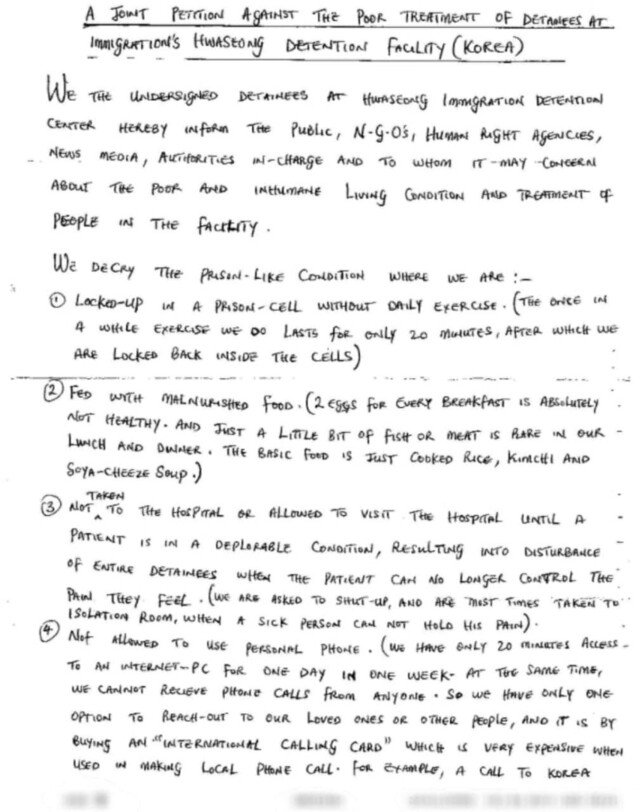 A JOINT PETITION AGAINST THE POOR TREATMENT OF DETAINEES AT
IMMIGRATION'S HWASEONG DETENTION FACILITY (KOREA)
WE THE UNDERSIGNED DETAINEES AT HWASEONG IMMIGRATION DETENTION
CENTER HEREBY INFORM THE PUBLIC, N-G-O'S, HUMAN RIGHT AGENCIES,
NEWS MEDIA, AUTHORITIES IN-CHARGE AND TO WHOM IT-MAY-CONCERN
ABOUT THE POOR AND INHUMANE LIVING CONDITION AND TREATMENT OF
PEOPLE IN THE FACILITY.
WE DECRY THE PRISON-LIKE CONDITION WHERE WE ARE :-
① LOCKED-UP IN A PRISON-CELL WITHOUT DAILY EXERCISE. (THE ONCE IN
A WHILE EXERCISE WE DO LASTS FOR ONLY 20 MINUTES, AFTER WHICH WE
ARE LOCKED BACK INSIDE THE CELLS)
② FED WITH MALNURISHED FOOD. (2 EGGS FOR EVERY BREAKFAST IS ABSOLUTELY
NOT HEALTHY. AND JUST A LITTLE BIT OF FISH OR MEAT IS RARE IN OUR
LUNCH AND DINNER. THE BASIC FOOD IS JUST COOKED RICE, KIMCHI AND
SOYA-CHEEZE SOUP.)
③ NOT TAKEN TO THE HOSPITAL OR ALLOWED TO VISIT THE HOSPITAL UNTIL A
PATIENT IS IN A DEPLORABLE CONDITION, RESULTING INTO DISTURBANCE
OF ENTIRE DETAINEES WHEN THE PATIENT CAN NO LONGER CONTROL THE
PAIN THEY FEEL. (WE ARE ASKED TO SHUT-UP, AND ARE MOST TIMES TAKEN TO
ISOLATION ROOM, WHEN A SICK PERSON CAN NOT HOLD HIS PAIN).
④ NOT ALLOWED TO USE PERSONAL PHONE. (WE HAVE ONLY 20 MINUTES ACCESS-
TO AN INTERNET-PC FOR ONE DAY IN ONE WEEK- AT THE SAME TIME,
WE CANNOT RECIEVE PHONE CALLS FROM ANYONE. SO WE HAVE ONLY ONE
OPTION TO REACH-OUT TO OUR LOVED ONES OR OTHER PEOPLE, AND IT IS BY
BUYING AN "INTERNATIONAL CALLING CARD" WHICH IS VERY EXPENSIVE WHEN
USED IN MAKING LOCAL PHONE CALL. FOR EXAMPLE, A CALL TO KOREA